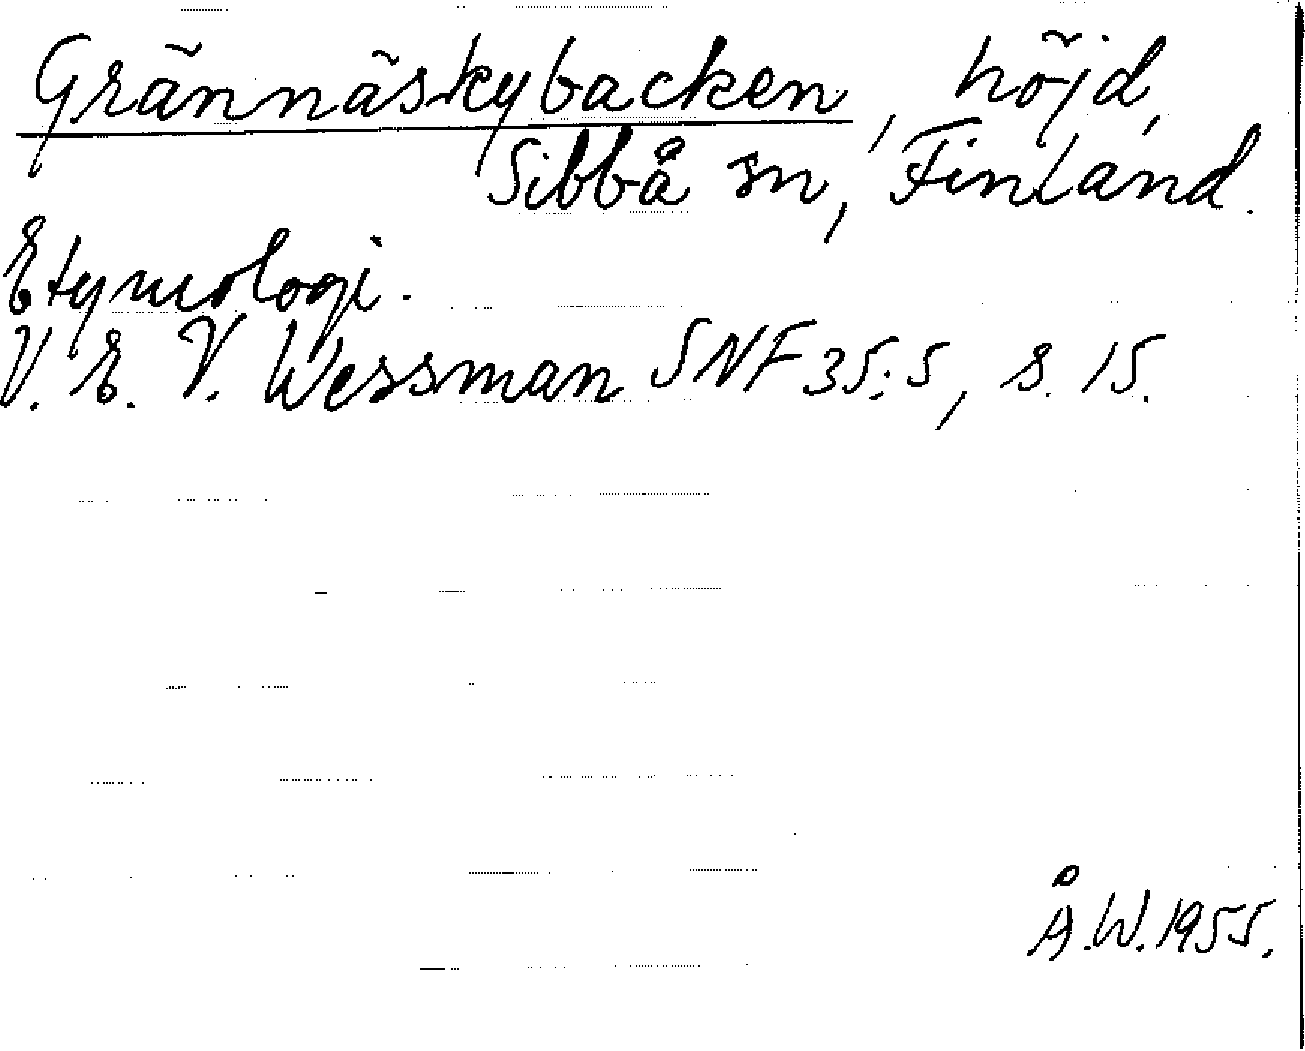 Grännäskybacken, höjd,
Sibbå sn, Finland.
Etymologi.
V. E. V. Wessman SNF 35:5, s. 15.
Å.W. 1955.